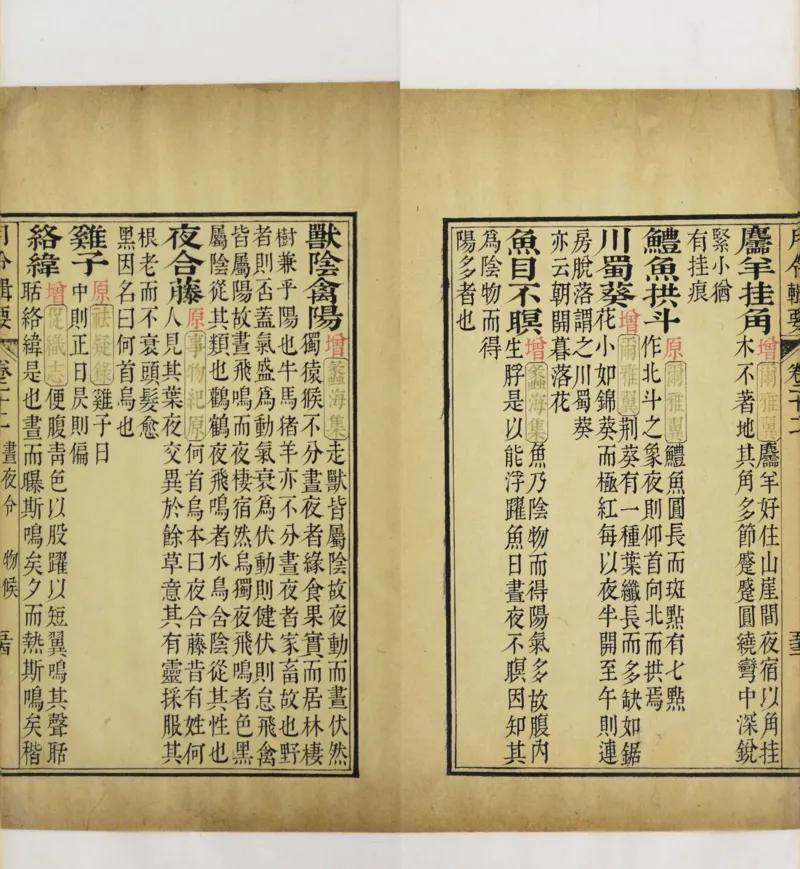 月令輯要 卷二十二 五十三
麢羊挂角 增 爾雅翼 麢羊好住山崖間夜宿以角挂
木不著地其角多節蹙蹙圓繞彎中深銳
緊小猶
有挂痕
鱧魚拱斗 原 爾雅翼 鱧魚圓長而斑點有七點
作北斗之象夜則仰首向北而拱焉
川蜀葵 增 爾雅翼 荆葵有一種葉纖長而多缺如鋸
花小如錦葵而極紅每以夜半開至午則連
房脫落謂之川蜀葵
亦云朝開暮落花
魚目不瞑 增 蠡海集 魚乃陰物而得陽氣多故腹內
生脬是以能浮躍魚日晝夜不瞑因知其
為陰物而得
陽多者也
獸陰禽陽 增 蠡海集 走獸皆屬陰故夜動而晝伏然
獨猿猴不分晝夜者緣食果實而居林棲
樹兼乎陽也牛馬猪羊亦不分晝夜者家畜故也野
者則否蓋氣盛為動氣衰為伏動則健伏則怠飛禽
皆屬陽故晝飛鳴而夜棲宿然烏獨夜飛鳴者色黑
屬陰從其類也鸛鶴夜飛鳴者水鳥含陰從其性也
夜合藤 原 事物紀原 何首烏本曰夜合藤昔有姓何
人見其葉夜交異於餘草意其有靈採服其
根老而不衰頭髮愈
黑因名曰何首烏也
雞子 原 祛疑錄 雞子日
中則正日昃則偏
絡緯 增 便腹青色以股躍以短翼鳴其聲聒
聒絡緯是也晝而曝斯鳴矣夕而熱斯鳴矣稭
月令輯要 卷二十二 晝夜令 物候 五十四